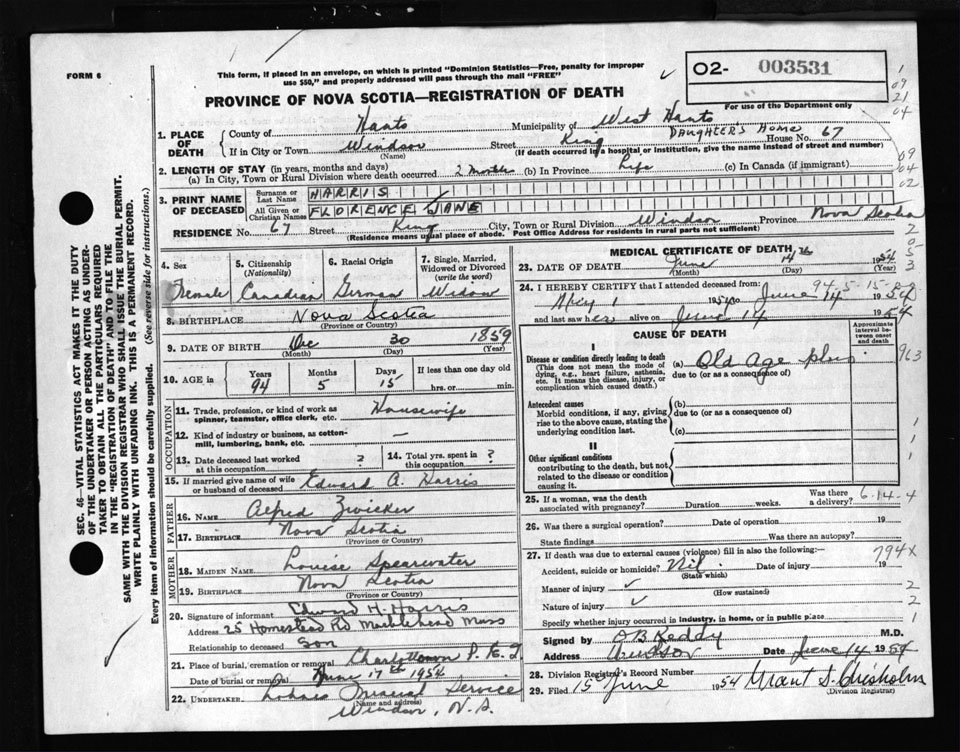 FORM 6
This form, if placed in an envelope, on which is printed "Dominion Statistics—Free, penalty for improper
use $50," and properly addressed will pass through the mail "FREE"
O2- 003531
For use of the Department only
PROVINCE OF NOVA SCOTIA—REGISTRATION OF DEATH
1. PLACE OF DEATH
County of Hants Municipality of West Hants
DAUGHTER'S HOME
If in City or Town Windsor Street King House No. 67
(Name) (If death occurred in a hospital or institution, give the name instead of street and number)
2. LENGTH OF STAY (in years, months and days)
(a) In City, Town or Rural Division where death occurred 2 months (b) In Province Life (c) In Canada (if immigrant)
3. PRINT NAME OF DECEASED
Surname or Last Name HARRIS
All Given or Christian Names FLORENCE JANE
RESIDENCE No. 67 Street King City, Town or Rural Division Windsor Province Nova Scotia
(Residence means usual place of abode. Post Office Address for residents in rural parts not sufficient)
4. Sex Female
5. Citizenship (Nationality) Canadian
6. Racial Origin German
7. Single, Married, Widowed or Divorced (write the word) Widow
8. BIRTHPLACE Nova Scotia
(Province or Country)
9. DATE OF BIRTH Dec 30 1859
(Month) (Day) (Year)
10. AGE in Years 94 Months 5 Days 15 If less than one day old hrs. or min.
OCCUPATION
11. Trade, profession, or kind of work as spinner, teamster, office clerk, etc. Housewife
12. Kind of industry or business, as cotton-mill, lumbering, bank, etc. —
13. Date deceased last worked at this occupation ?
14. Total yrs. spent in this occupation ?
15. If married give name of wife or husband of deceased Edward A. Harris
FATHER
16. NAME Alfred Zwicker
17. BIRTHPLACE Nova Scotia
(Province or Country)
MOTHER
18. MAIDEN NAME Louise Spearwater
19. BIRTHPLACE Nova Scotia
(Province or Country)
20. Signature of informant Edward H. Harris
Address 25 Homestead Rd Marblehead Mass
Relationship to deceased Son
21. Place of burial, cremation or removal Charlottetown P.E.I.
Date of burial or removal June 17th 1954
22. UNDERTAKER Funeral Service
(Name and address)
Windsor, N.S.
MEDICAL CERTIFICATE OF DEATH
23. DATE OF DEATH June 14th 1954
(Month) (Day) (Year)
94-5-15
24. I HEREBY CERTIFY that I attended deceased from:
May 1 1954 to June 14 1954
and last saw her alive on June 14 1954
CAUSE OF DEATH
Approximate interval between onset and death
I
Disease or condition directly leading to death
(This does not mean the mode of dying, e.g., heart failure, asthenia, etc. It means the disease, injury, or complication which caused death.)
(a) Old Age plus
due to (or as a consequence of)
Antecedent causes
Morbid conditions, if any, giving rise to the above cause, stating the underlying condition last.
(b)
due to (or as a consequence of)
(c)
II
Other significant conditions
contributing to the death, but not related to the disease or condition causing it.
25. If a woman, was the death associated with pregnancy? Duration weeks. Was there a delivery? 6-14-4
26. Was there a surgical operation? Date of operation 19
State findings Was there an autopsy?
27. If death was due to external causes (violence) fill in also the following:— 794x
Accident, suicide or homicide? Nil. Date of injury 19
(State which)
Manner of injury ✓
(How sustained)
Nature of injury ✓
Specify whether injury occurred in industry, in home, or in public place
Signed by O B Keddy M.D.
Address Windsor Date June 14 1954
28. Division Registrar's Record Number
29. Filed 15 June 1954 Grant S. Chisholm
(Division Registrar)
SEC. 46—VITAL STATISTICS ACT MAKES IT THE DUTY
OF THE UNDERTAKER OR PERSON ACTING AS UNDER-
TAKER TO OBTAIN ALL THE PARTICULARS REQUIRED
IN THE "REGISTRATION OF DEATH" AND TO FILE THE
SAME WITH THE DIVISION REGISTRAR WHO SHALL ISSUE THE BURIAL PERMIT.
WRITE PLAINLY WITH UNFADING INK. THIS IS A PERMANENT RECORD.
Every item of information should be carefully supplied. (See reverse side for instructions.)
1
09
21
04
09
04
02
2
0
5
3
963
1
1
2
2
1